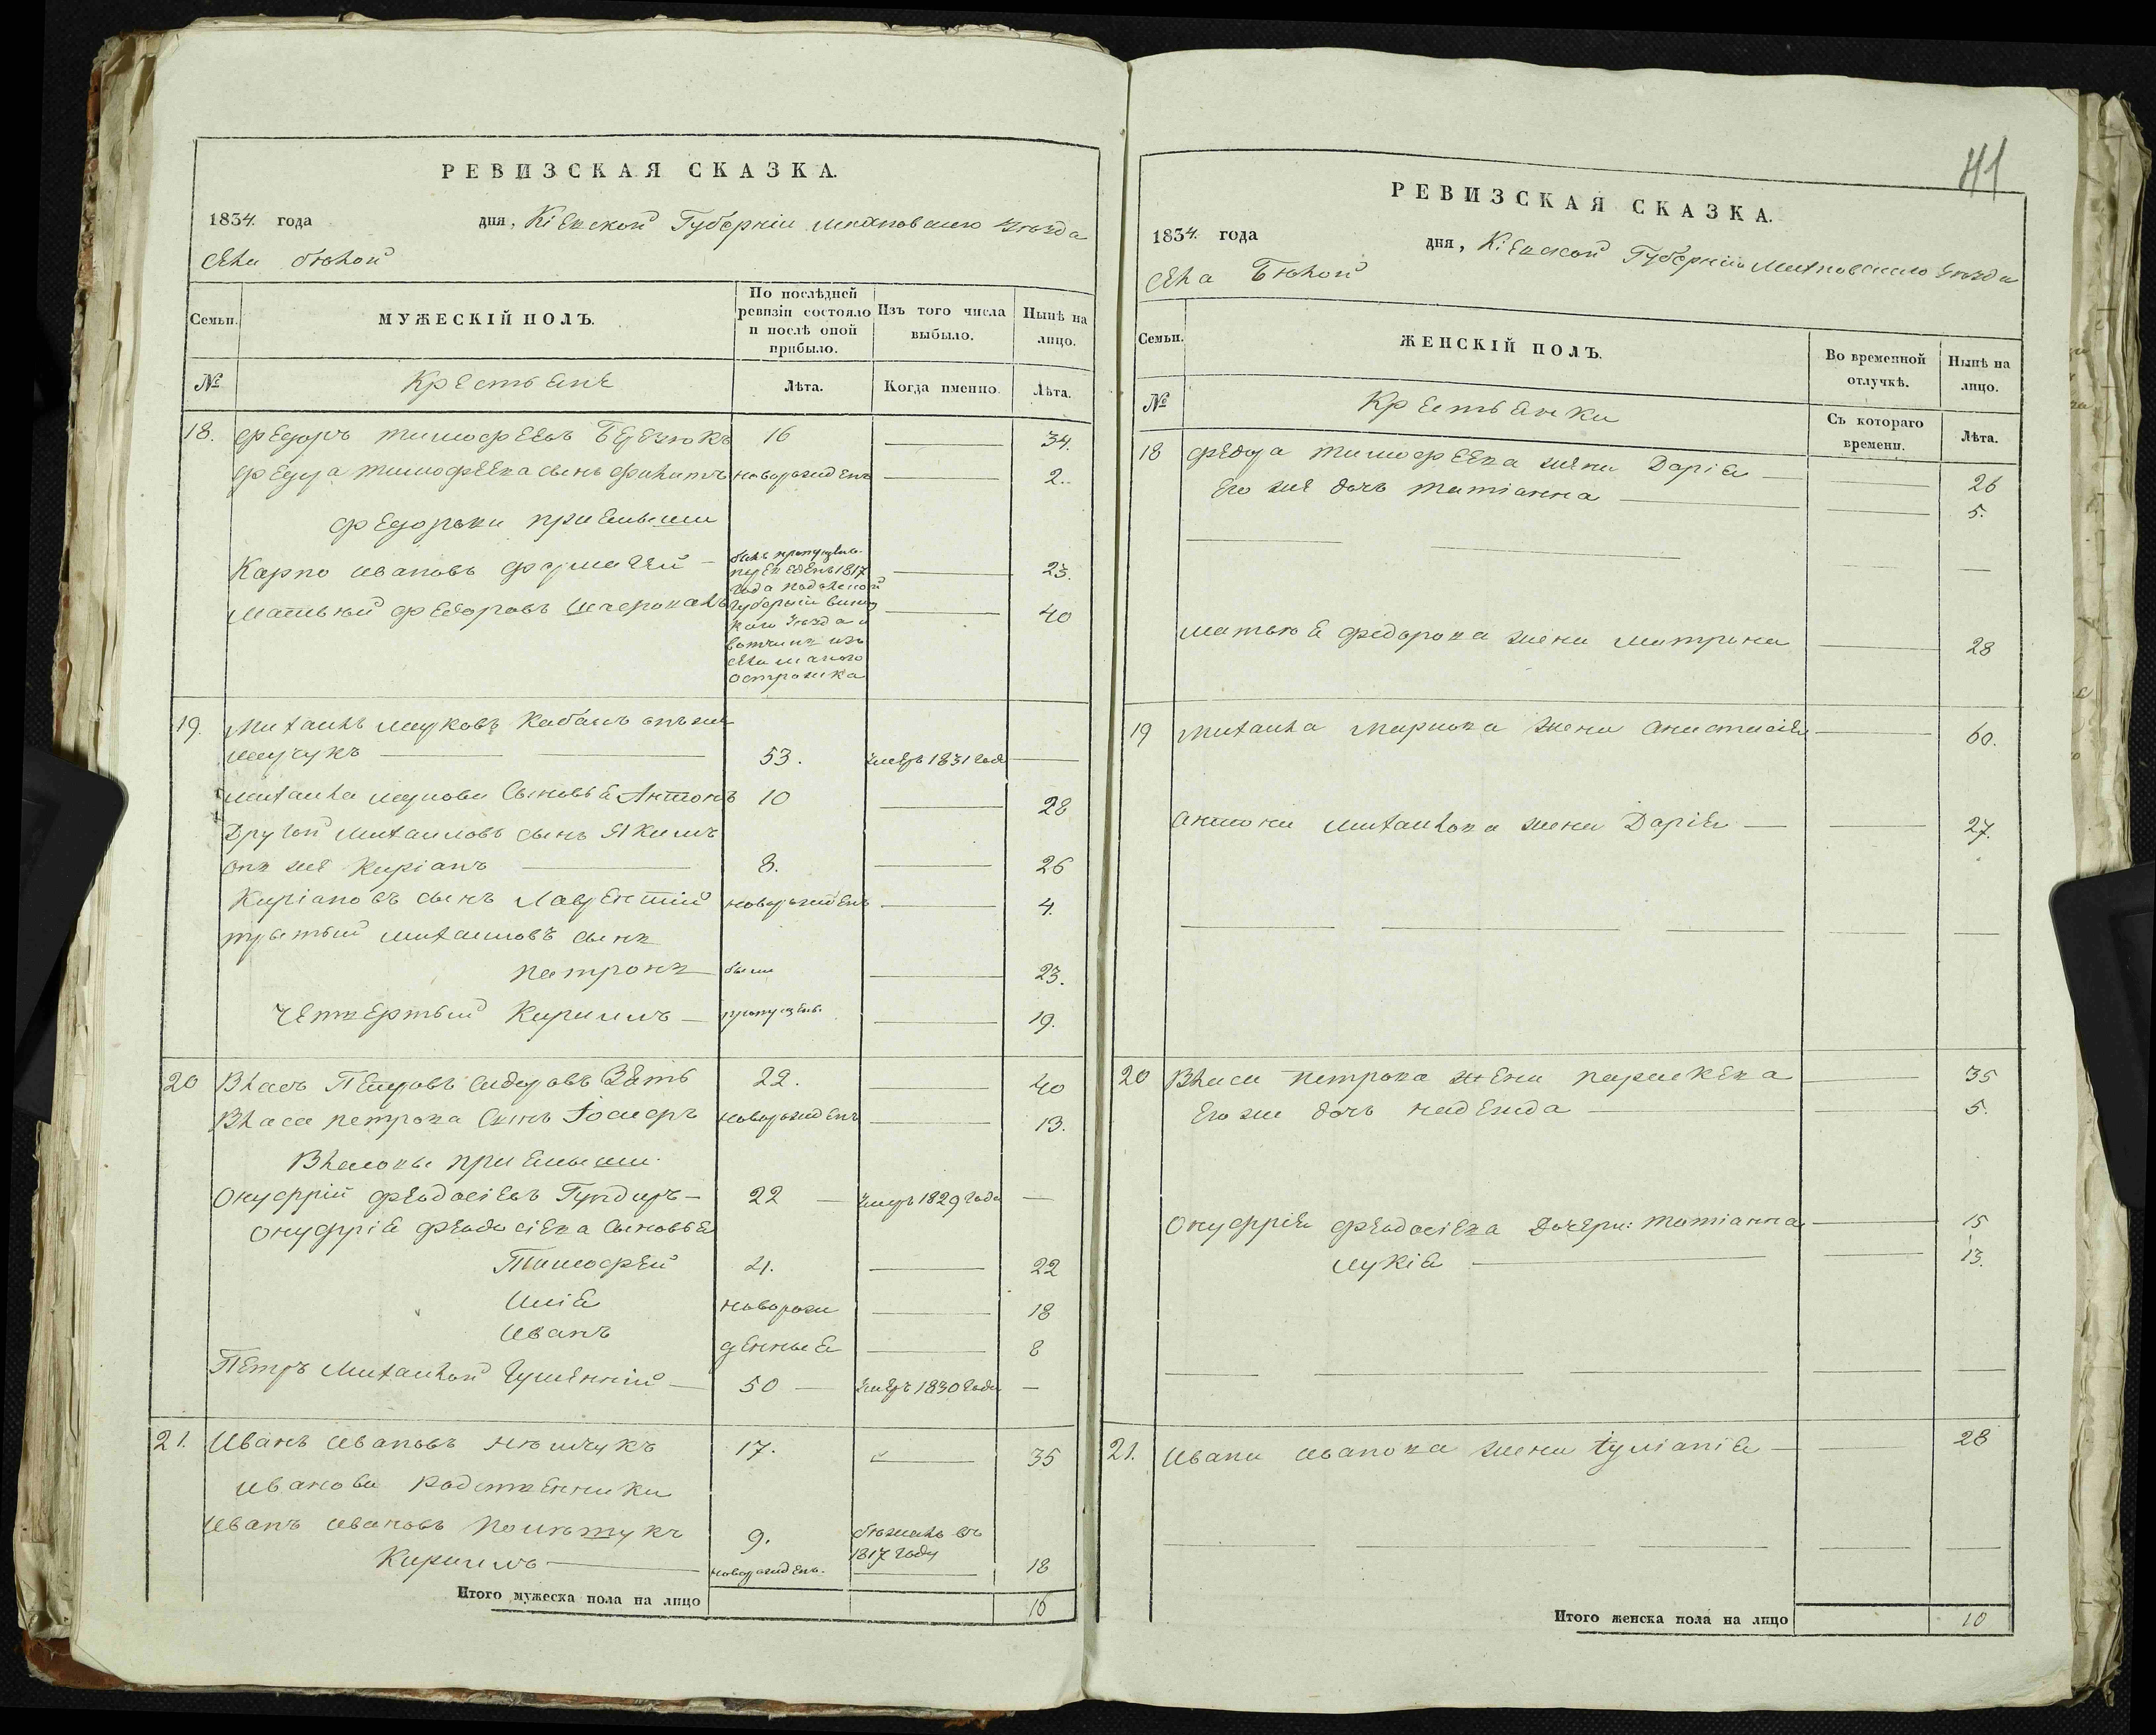 РЕВИЗСКАЯ СКАЗКА.
1834. года дня, Кіевской Губерніи Махновскаго уѣзда
села Бѣлой
Семьи.
МУЖЕСКІЙ ПОЛЪ.
По послѣдней ревизіи состояло и послѣ оной прибыло.
Изъ того числа выбыло.
Нынѣ на лицо.
№
Крестьяне
Лѣта.
Когда именно.
Лѣта.
18. Федоръ Тимофеевъ Березюкъ 16 34.
Федора Тимофеева сынъ Филипъ новорожденъ 2.
Федоровы приемыши
Карпо Ивановъ 23.
Матвѣй Федоровъ 40
былъ пропущенъ
переведенъ 1817
года Подольской
Губерніи
уѣзда
вотчины изъ
села малого
Острожка
19. Михаилъ Марковъ Кабанъ онъ же
53. умеръ 1831 года
Михаила Маркова сыновья Антонъ 10 28
Другой Михаиловъ сынъ Якимъ
онъ же Киріанъ 8. 26
Киріановъ сынъ Лаврентій новорожденъ 4.
третый Михаиловъ сынъ
Патронъ были 23.
четвертый Кирилъ пропущены 19.
20 Власъ Петровъ Сидоровъ Зять 22. 40
Власа Петрова сынъ Іосифъ новорожденъ 13.
Власовы приемыши
Онуфрій Феодосіевъ Гундиръ 22 умеръ 1829 года
Онуфрія Феодосіева сыновья
Тимофей 4. 22
Илія новорож 18
Иванъ денные 8
Петръ Михайлов 50 умеръ 1830 года
21. Иванъ Ивановъ 17. 35
Иванова родственники
Иванъ Ивановъ 9. бѣжалъ въ
1817 году
Кирилъ новорожденъ. 18
Итого мужеска пола на лицо 16
41
РЕВИЗСКАЯ СКАЗКА.
1834. года дня, Кіевской Губерніи Махновскаго уѣзда
села Бѣлой
Семьи.
ЖЕНСКІЙ ПОЛЪ.
Во временной отлучкѣ.
Нынѣ на лицо.
№
Крестьянки
Съ котораго времени.
Лѣта.
18 Федора Тимофеева жена Дарія 26
Его же дочь Татіанна 5.
Матвѣя Федорова жена Матрина 28
19 Михаила Маркова жена Анастасія 60.
Антона Михаилова жена Дарія 27.
20 Власа Петрова жена Параскева 35
Его же дочь Надежда 5.
Онуфрія Феодосіева дочери: Татіанна 15
Лукія 13.
21. Ивана Иванова жена Іуліанія 28
Итого женска пола на лицо 10